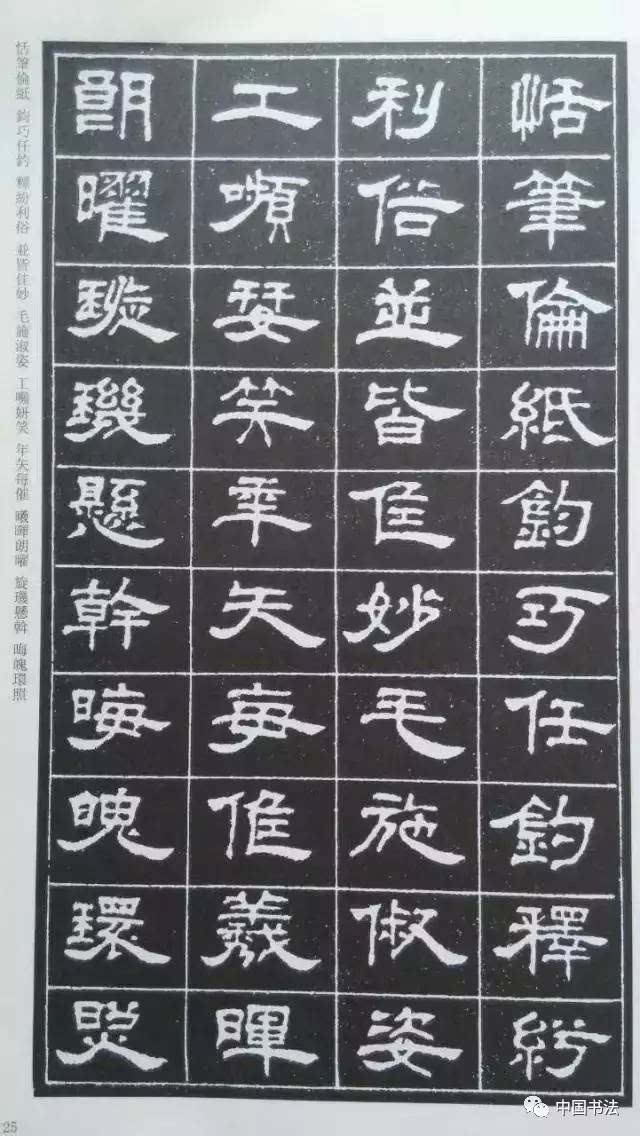 恬筆倫紙鈞巧任鈞釋紛
利俗並皆佳妙毛施俶姿
工嚬妍笑年矢每催羲暉
朗曜璇璣懸幹晦魄環照
恬筆倫紙 鈞巧任釣 釋紛利俗 並皆佳妙 毛施淑姿 工嚬妍笑 年矢每催 曦暉朗曜 旋璣懸斡 晦魄環照
25
中国书法